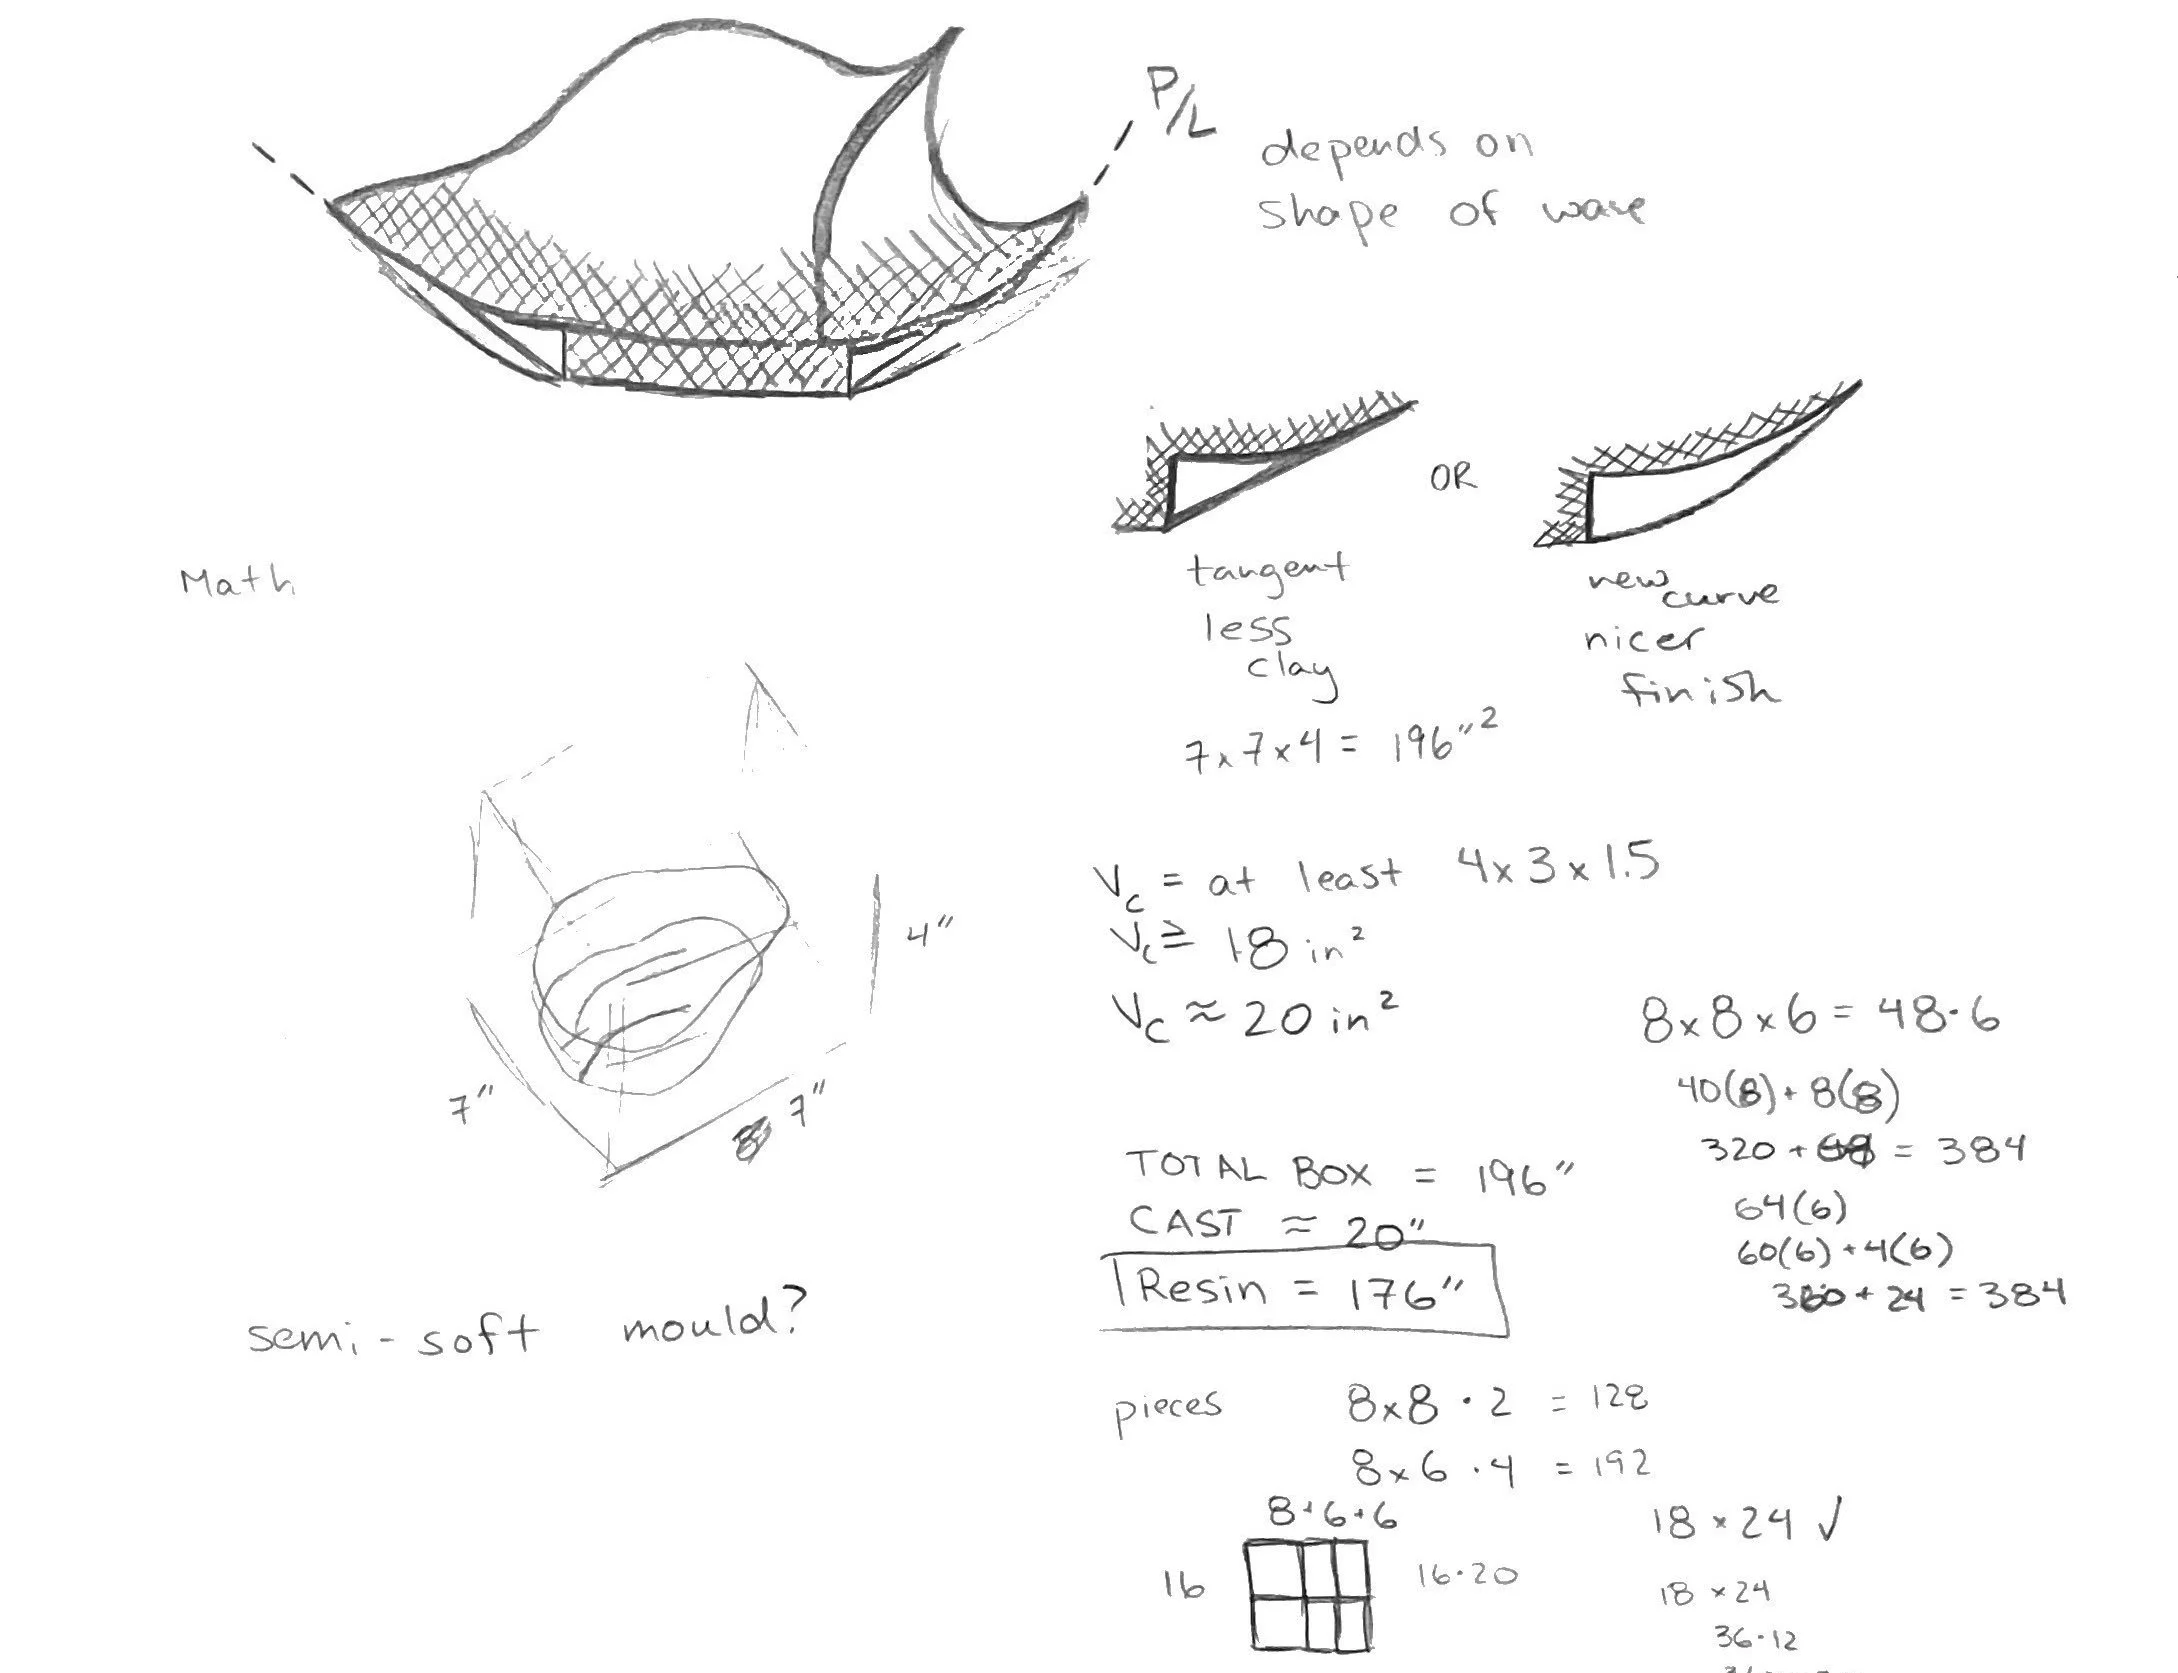 P/L
depends on
shape of wave
OR
tangent
less
clay
new
curve
nicer
finish
Math
7x7x4 = 196"²
4"
7"
7"
Vc = at least 4x3x1.5
Vc ≥ 18 in²
Vc ≈ 20 in²
8x8x6 = 48·6
40(8) + 8(8)
320 + 64 = 384
64(6)
60(6) + 4(6)
360 + 24 = 384
TOTAL BOX = 196"
CAST ≈ 20"
Resin = 176"
semi-soft mould?
pieces 8x8 · 2 = 128
8x6 · 4 = 192
8+6+6
16
16·20
18 x 24 ✓
18 x 24
36·12